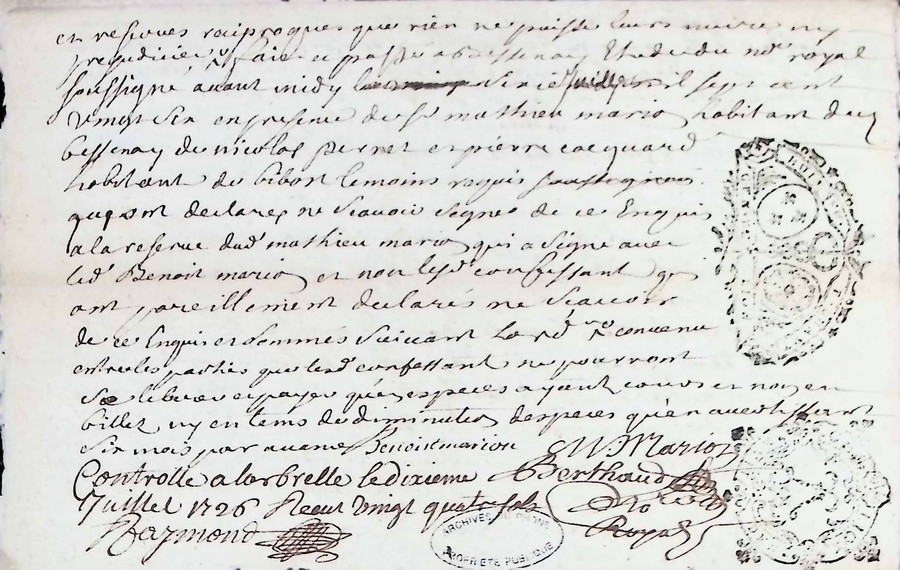 et reserves reciproques que rien ne puisse leurs nuire ny
prejudicier fait et passé a bessenay Etude du no.re royal
soussigné avant midy le sixie juillet mil sept cent
vingt six en presence de s.r mathieu marion habitant dud
bessenay de nicolas pernet et pierre jacquard
habitant de bibost temoins requis
qui ont declarez ne scavoir signer de ce Enquis
a la reserve dud mathieu marion qui a signé avec
led. Benoit marion et non lesd confessant qui
ont pareillement declarés ne scavoir
de ce Enquis et sommés suivant l'ord.
convenu
entre les parties que lesd confessant ne pourront
se liberer et payer qu'en especes ayant cours et non en
billet ny en tems de diminution d'especes qu'en avertissant
six mois par avance Benoist marion M Marion
Controllé a larbrelle le dixieme Berthaud
Juillet 1726 Receu vingt quatre sols no.re
Raymond Royal
ARCHIVES DU RHONE
PROPRIETE PUBLIQUE